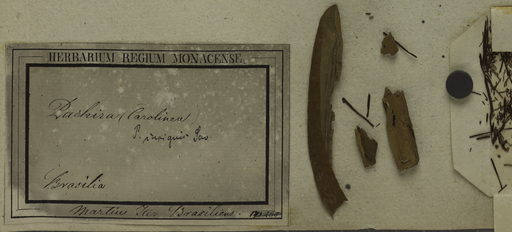 HERBARIUM REGIUM MONACENSE.
Pachira (Carolinea)
P. insignis Sav
Brasilia
Martius Iter Brasilicus.